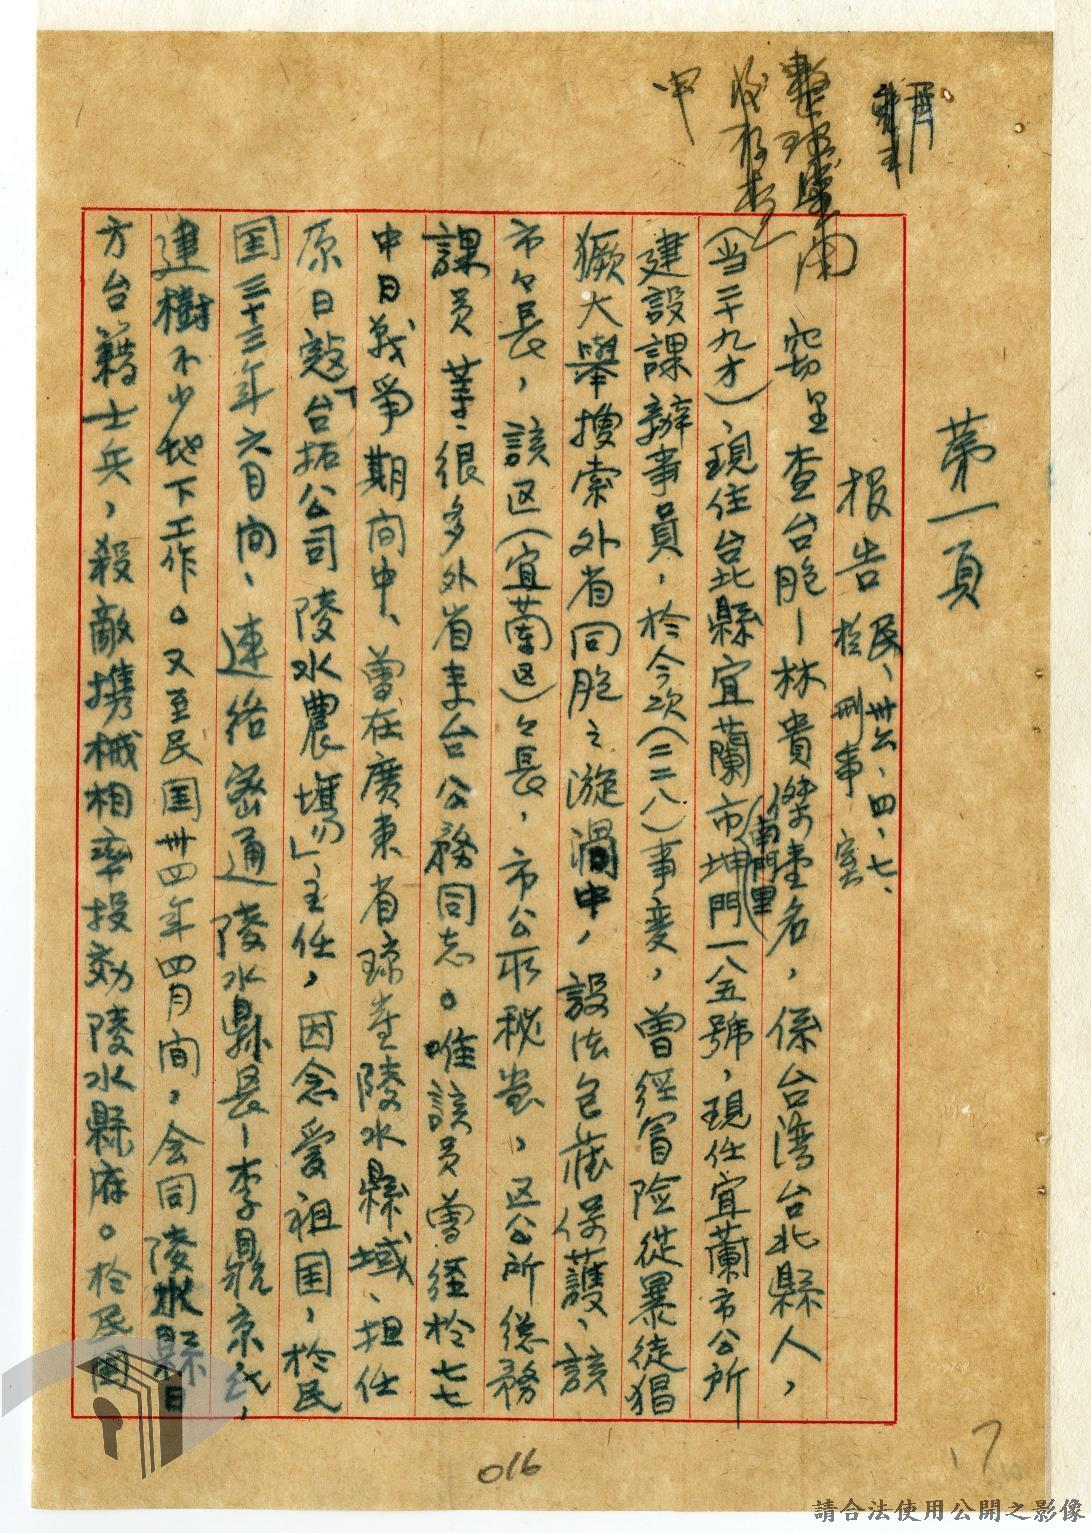 第一頁
報告 民、卅六、四、七、
於刑事室
窃呈查台胞－林貴傑壹名，係台湾台北縣人，
（当二十九才）、現住台北縣宜蘭市坤門（南門里）一八五號，現任宜蘭市公所
建設課辦事員，於今次（二二八）事变，曾經冒险從暴徒猖
獗大舉搜索外省同胞之漩渦中，設法包藏保護、該
市々長，該区（宜蘭区）々長，市公所秘書，区公所總務
課員等很多外省來台公務同志。唯該員曾經於七七
中日戦爭期间中、曾在廣東省琼崖陵水縣域、担任
原日敵「台拓公司陵水農場」主任，因念爱祖国，於民
国三十三年六月间、連絡密通陵水縣長－李 京氏，
建樹不少地下工作。又至民国卅四年四月间，会同陵水縣日
方台籍士兵，殺敵携械相率投効陵水縣府。於民国
整理案
中
016
17
請合法使用公開之影像